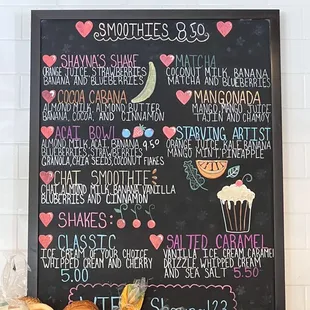 SMOOTHIES 8.50
SHAYNA'S SHAKE
ORANGE JUICE STRAWBERRIES
BANANA AND BLUEBERRIES
MATCHA
COCONUT MILK, BANANA
MATCHA AND BLUEBERRIES
COCOA CABANA
ALMOND MILK, ALMOND BUTTER
BANANA, COCOA, AND CINNAMON
MANGONADA
MANGO, MANGO JUICE
TAJIN AND CHAMOY
ACAI BOWL
ALMOND MILK, ACAI, BANANA, 9.50
BLUEBERRIES, STRAWBERRIES
GRANOLA, CHIA SEEDS, COCONUT FLAKES
STARVING ARTIST
ORANGE JUICE KALE BANANA
MANGO MINT, PINEAPPLE
CHAI SMOOTHIE
CHAI, ALMOND MILK, BANANA, VANILLA
BLUBERRIES AND CINNAMON
SHAKES:
CLASSIC
ICE CREAM OF YOUR CHOICE
WHIPPED CREAM AND CHERRY
5.00
SALTED CARAMEL
VANILLA ICE CREAM CARAMEL
DRIZZLE, WHIPPED CREAM
AND SEA SALT 5.50